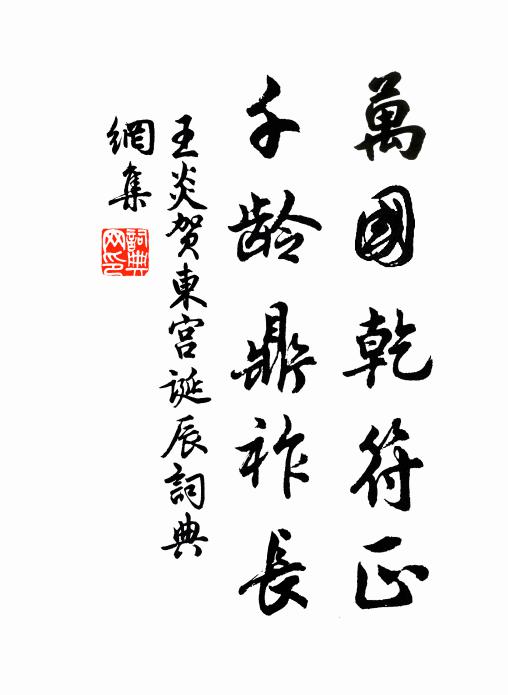 萬國乾符正
千龄鼎祚長
王炎賀東宮誕辰詞典
網集
詞典
网印